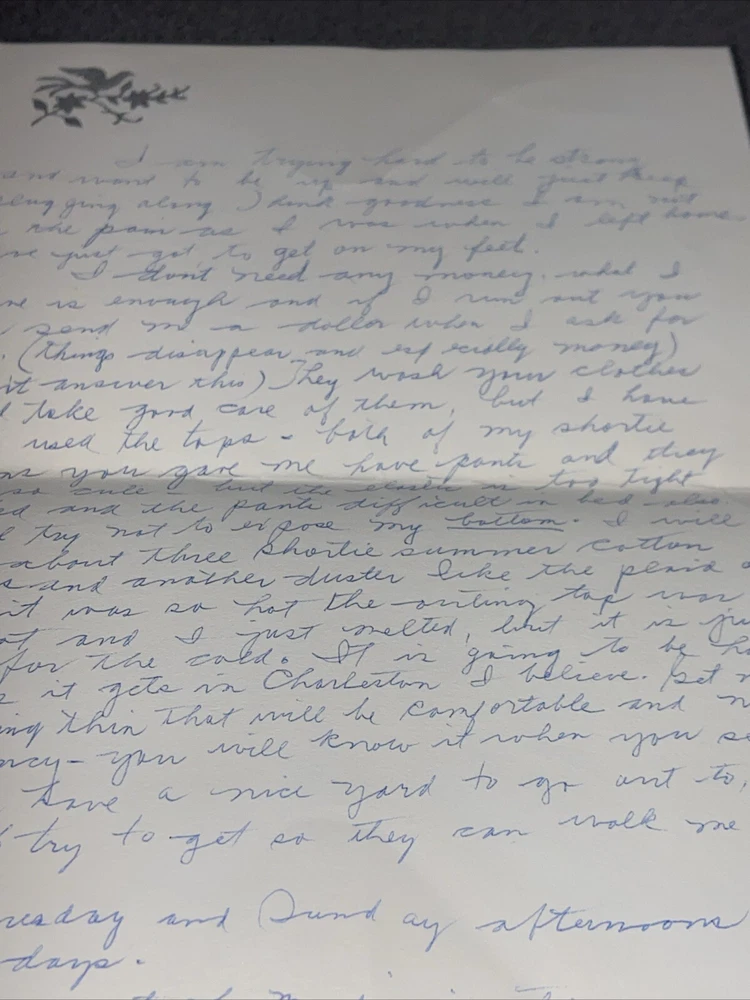 I am trying hard to be strong
and want to be up and will just keep
plugging along Think goodness I am not
the pain as I was when I left home
just got to get on my feet.
I dont need any money. what I
is enough and if I run out you
send me a dollar when I ask for
. (things disappear and especially money)
answer this) They wash your clothes
take good care of them, but I have
used the tops - both of my shortie
you gave me have pants and they
so cute - but the elastic is too tight
and the pants difficult in bed also
try not to expose my bottom. I will
about three shortie summer cotton
and another duster like the plaid
it was so hot the outing top was
and I just melted, but it is
for the cold. It is going to be
it gets in Charleston I believe. Get
thin that will be comfortable and
- you will know it when you
have a nice yard to go out to,
try to get so they can walk me
and Sunday afternoons
days.